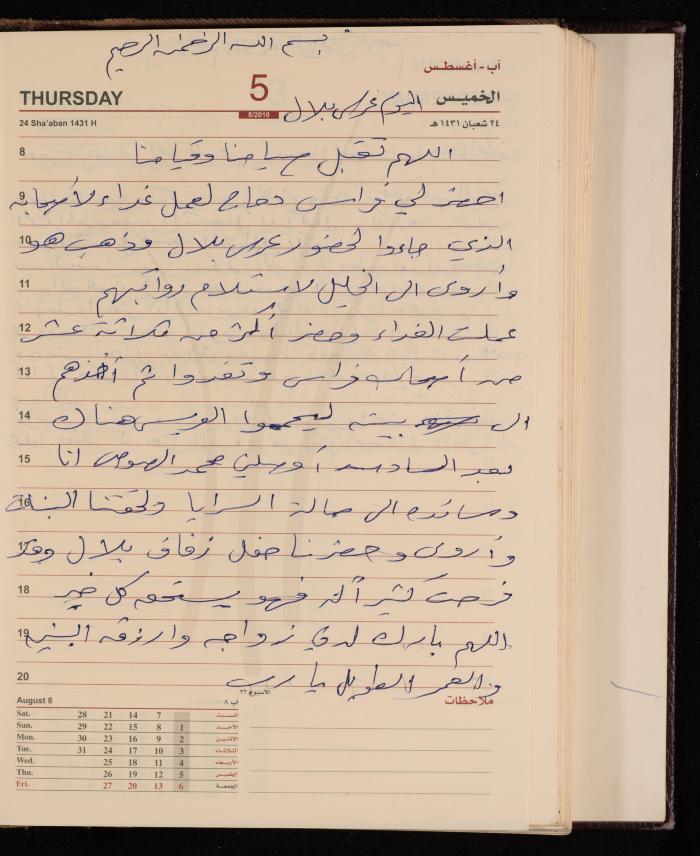 بسم الله الرحمن الرحيم
آب - أغسطس
THURSDAY 5 الخميس
8/2010
اليوم عرس بلال
24 Sha'aban 1431 H ٢٤ شعبان ١٤٣١ هـ
8 اللهم تقبل صيامنا وقيامنا
9 احضر لي فراس دجاج لعمل غداء لأصحابه
10 الذي جاءوا لحضور عرس بلال وذهب هو
11 وأروى الى الخليل لاستلام رواتبهم
12 عملت الغداء وحضر أكثر من ثلاثة عشر
13 من أصحاب فراس وتغدوا ثم أخذهم
14 الى بيته ليحمموا العريس هناك
15 بعد السادسة أوصلني محمد الصوص انا
16 وسائده الى صالة السرايا ولحقتنا البنات
17 وأروى وحضرنا حفل زفاف بلال وقد
18 فرحت كثيراً له فهو يستحق كل خير
19 اللهم بارك له في زواجه وارزقه البنين
20 والعمر الطويل يا رب
August 8 آب ٨ الأسبوع ٣٢ ملاحظات
Sat. 28 21 14 7 السبت
Sun. 29 22 15 8 1 الأحد
Mon. 30 23 16 9 2 الاثنين
Tue. 31 24 17 10 3 الثلاثاء
Wed. 25 18 11 4 الأربعاء
Thu. 26 19 12 5 الخميس
Fri. 27 20 13 6 الجمعة